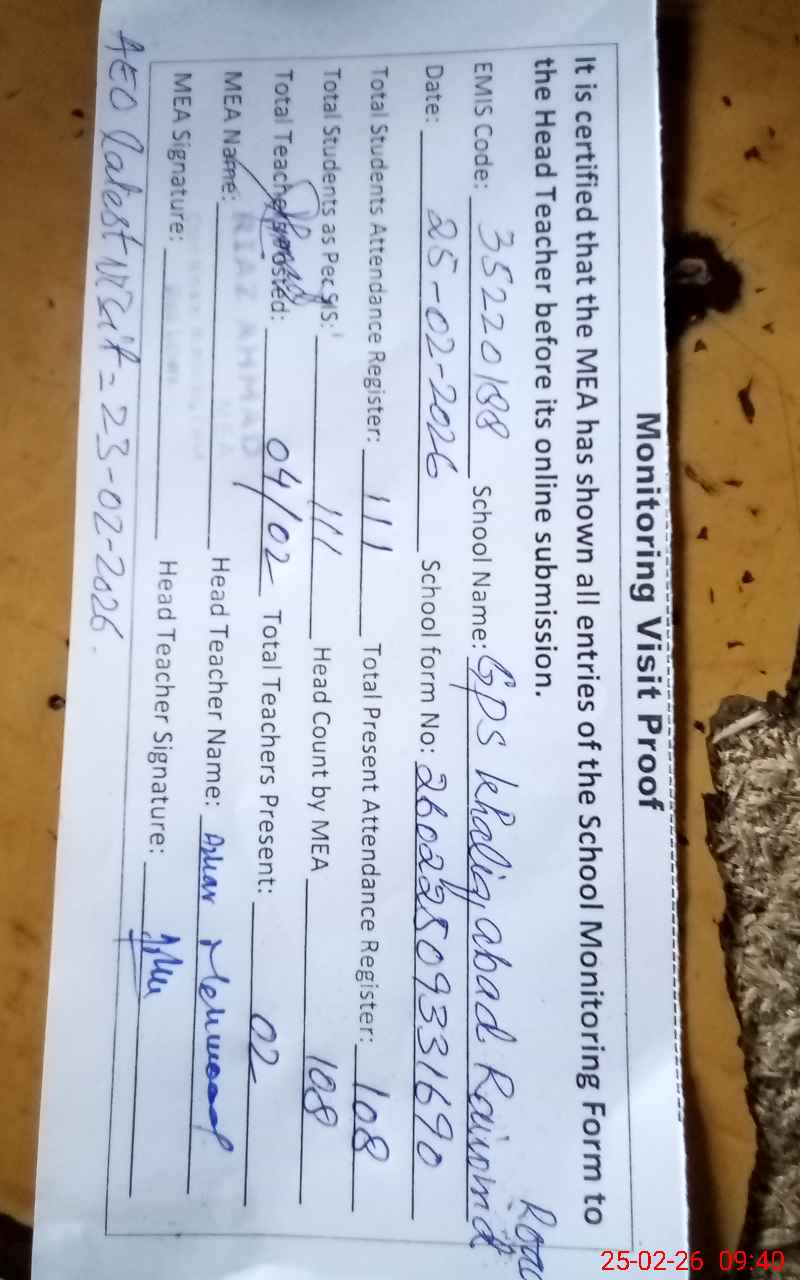 Monitoring Visit Proof
It is certified that the MEA has shown all entries of the School Monitoring Form to
the Head Teacher before its online submission.
EMIS Code: 35220188 School Name: GPS Khaliq abad Raiwind Road
Date: 25-02-2026 School form No: 26022509331690
Total Students Attendance Register: 111 Total Present Attendance Register: 108
Total Students as Per SIS: 111 Head Count by MEA 108
Total Teachers Posted: 04/02 Total Teachers Present: 02
MEA Name: RIAZ AHMAD Head Teacher Name: Azhar Mehmood
MEA
MEA Signature: Head Teacher Signature:
AEO latest visit = 23-02-2026.
25-02-26 09:40